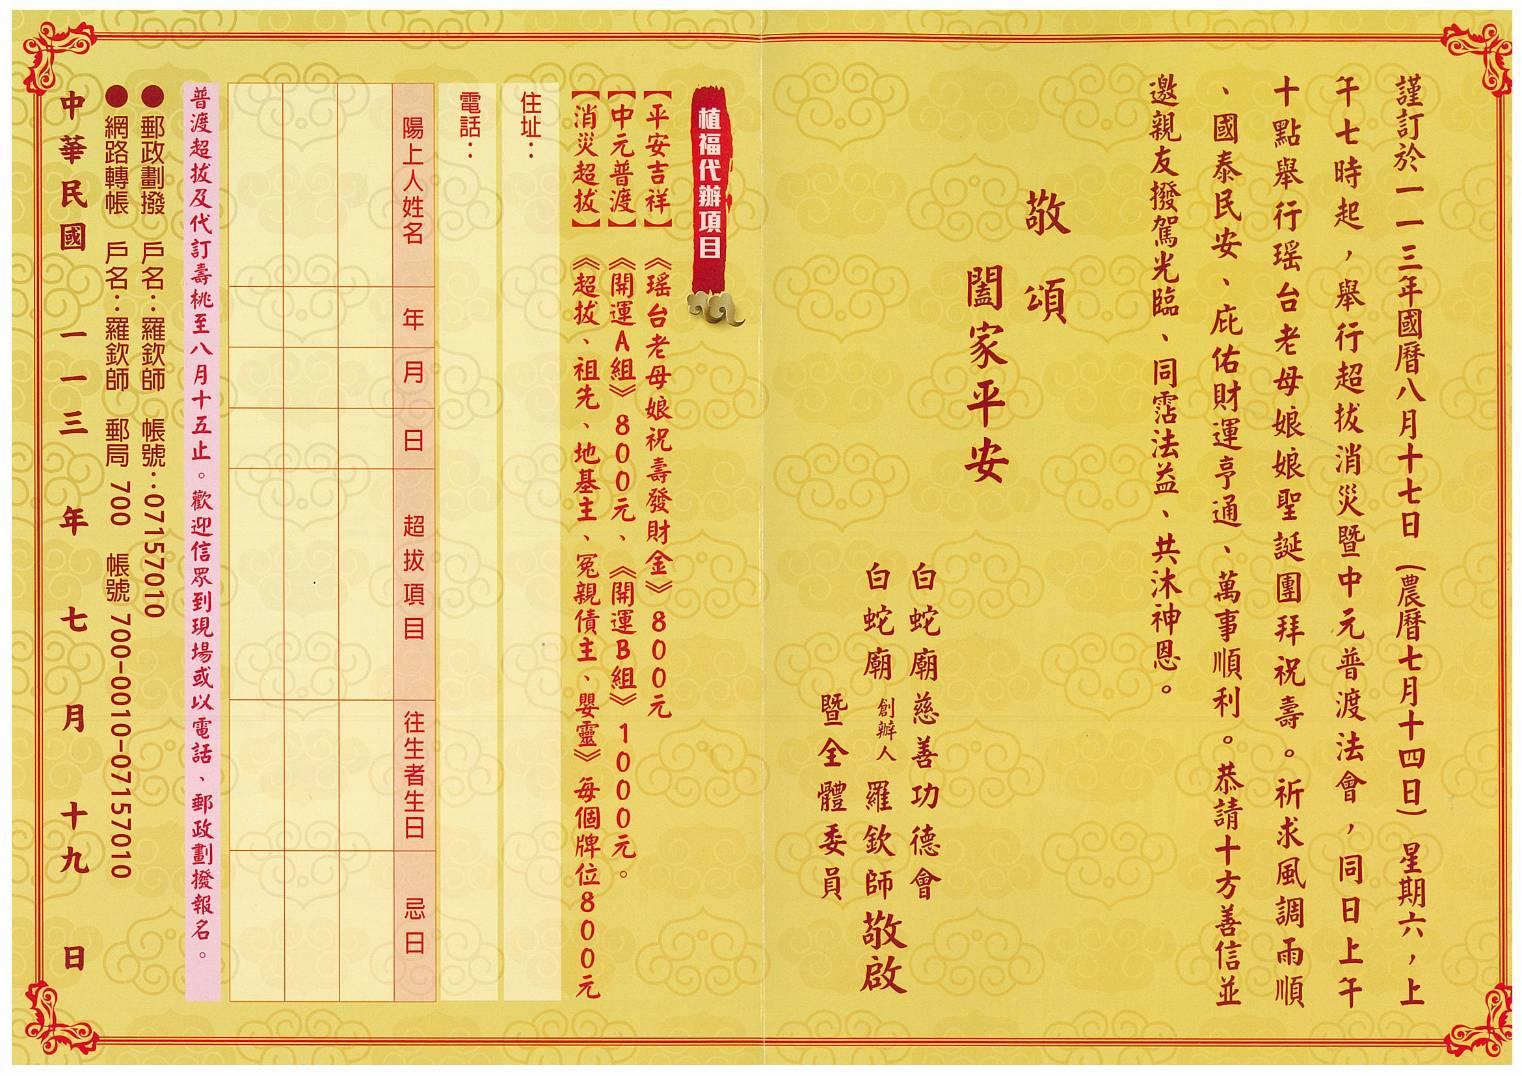 謹訂於一一三年國曆八月十七日(農曆七月十四日)星期六，上
午七時起，舉行超拔消災暨中元普渡法會，同日上午
十點舉行瑶台老母娘娘聖誕團拜祝壽。祈求風調雨順
、國泰民安、庇佑財運亨通、萬事順利。恭請十方善信並
邀親友撥駕光臨、同霑法益、共沐神恩。
敬頌
闔家平安
白蛇廟慈善功德會
白蛇廟創辦人羅欽師敬啟
暨全體委員
植福代辦項目
【平安吉祥】《瑶台老母娘祝壽發財金》800元
【中元普渡】《開運A組》800元、《開運B組》1000元。
【消災超拔】《超拔、祖先、地基主、冤親債主、嬰靈》每個牌位800元
住址：
電話：
陽上人姓名 年 月 日 超拔項目 往生者生日 忌日
普渡超拔及代訂壽桃至八月十五止。歡迎信眾到現場或以電話、郵政劃撥報名。
●郵政劃撥 戶名：羅欽師 帳號：07157010
●網路轉帳 戶名：羅欽師 郵局 700 帳號 700-0010-07157010
中華民國 一一三 年 七 月 十九 日